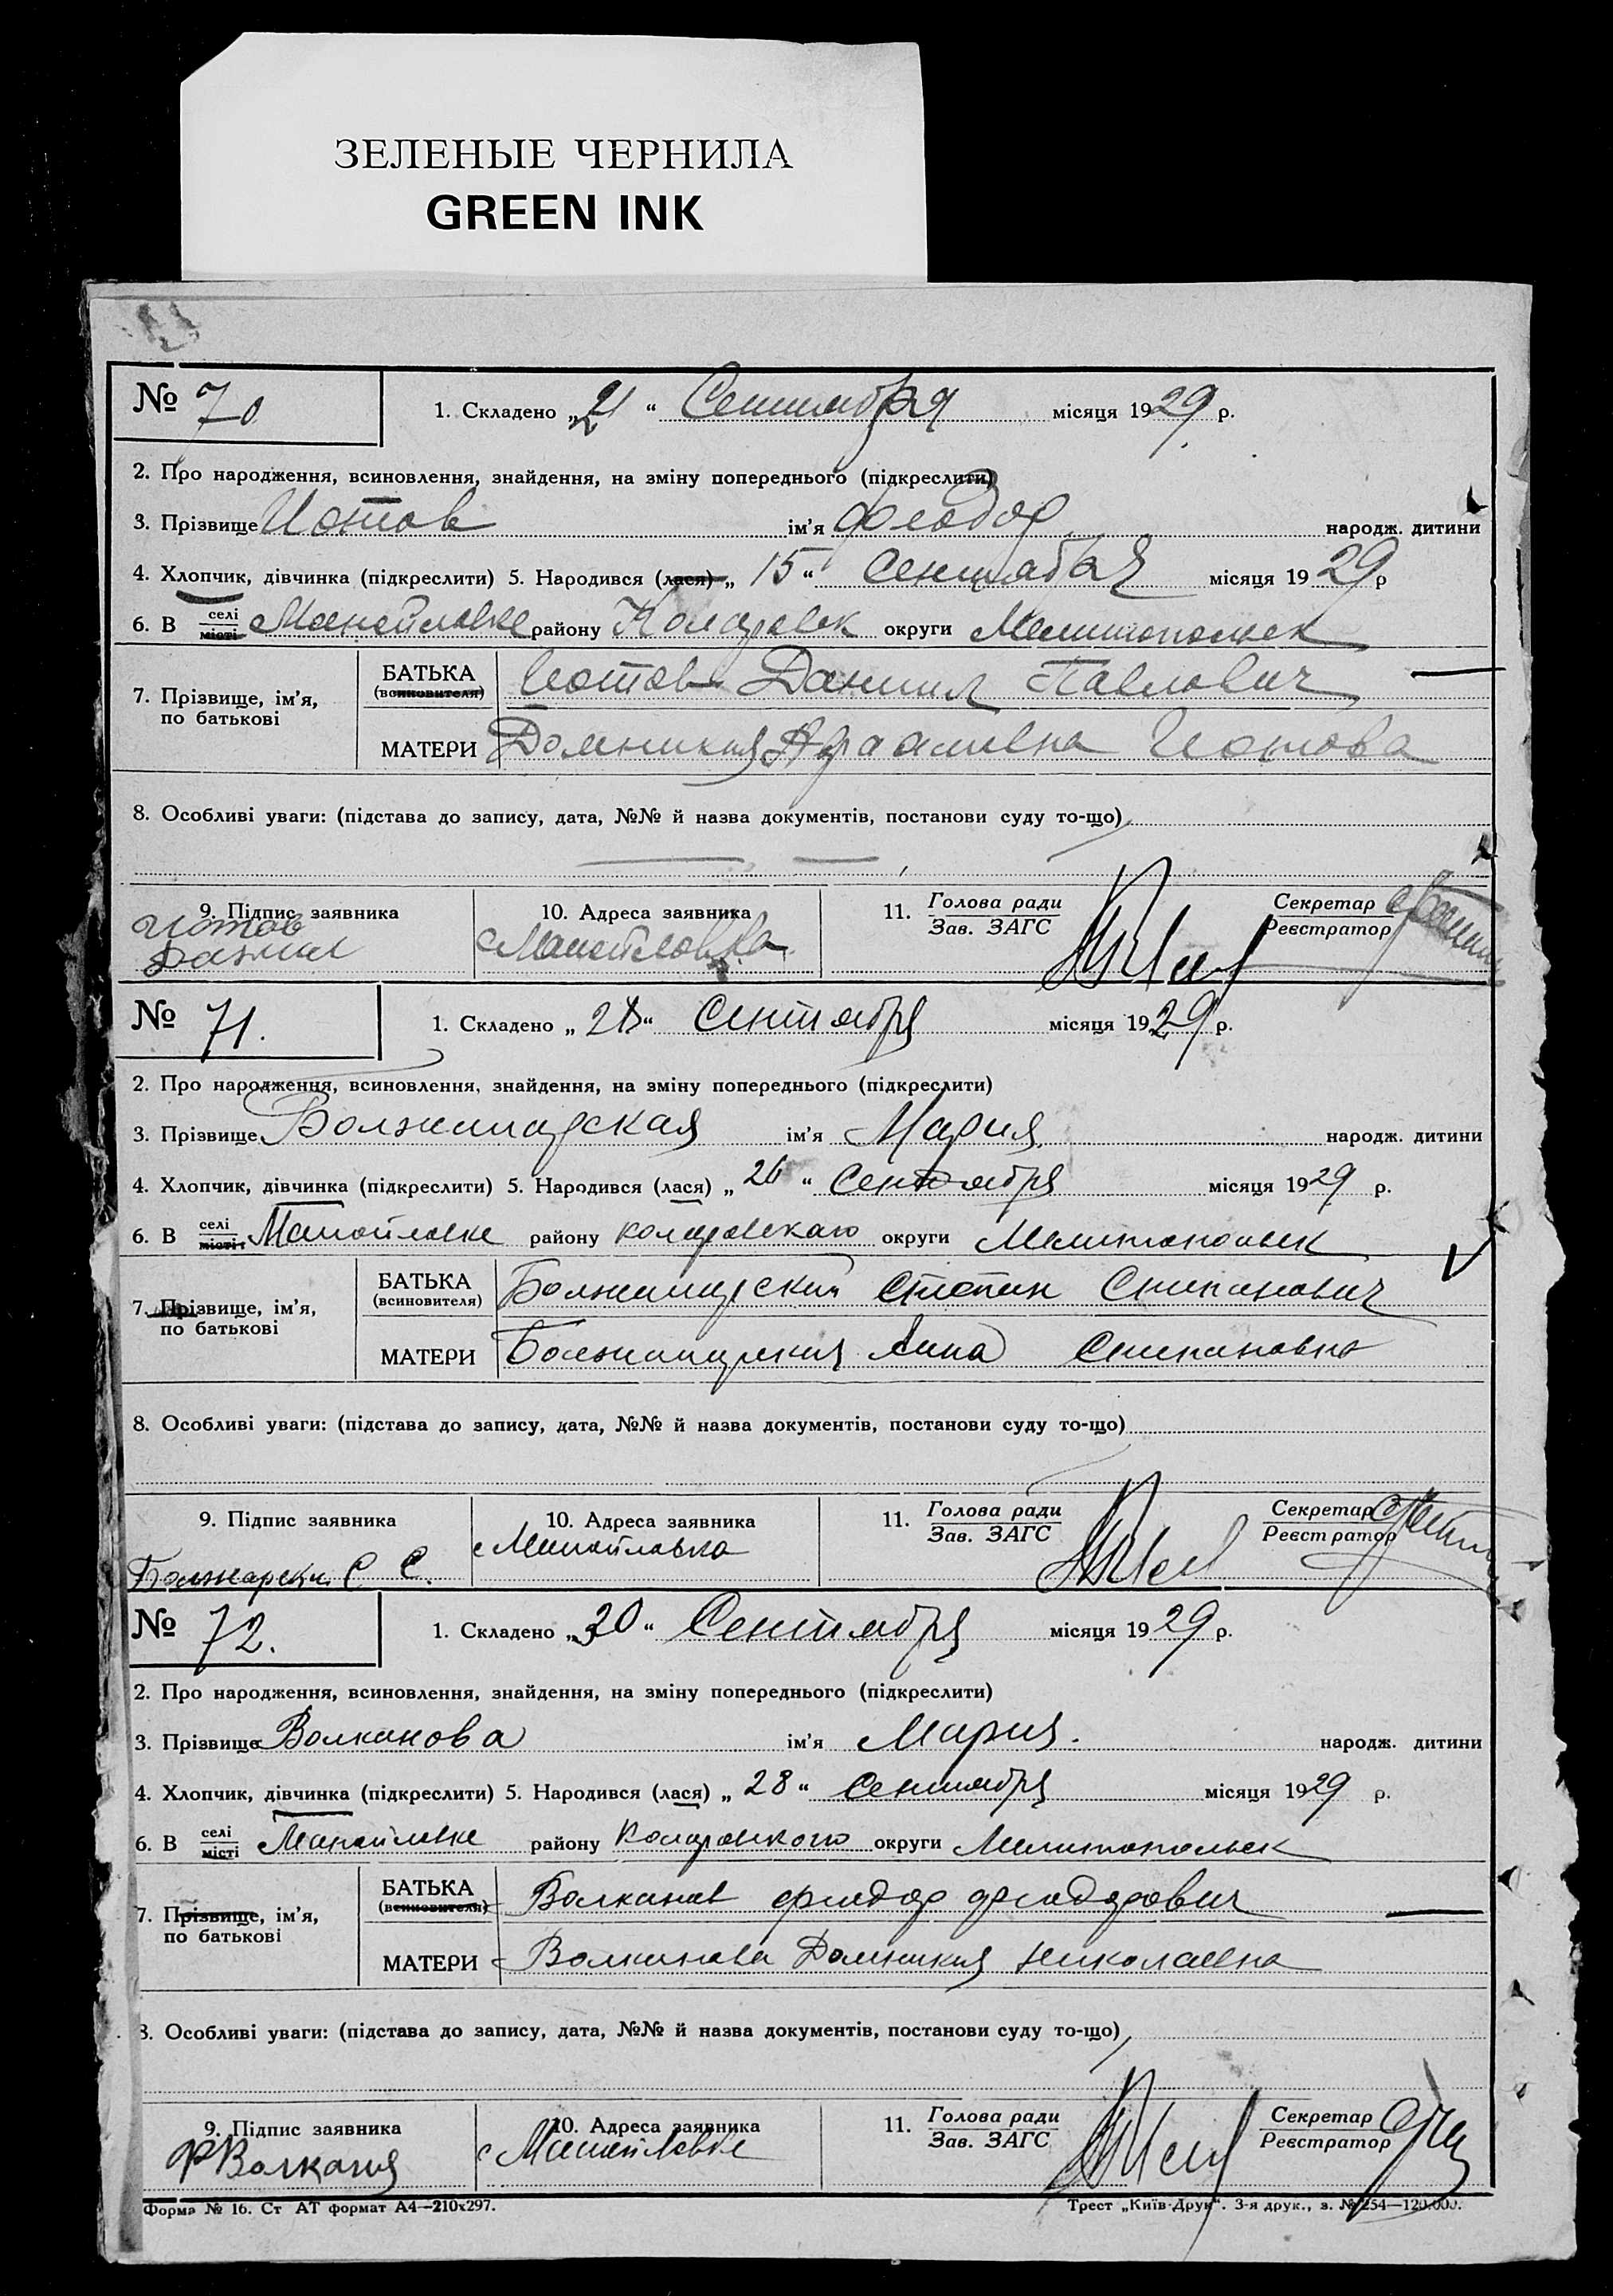 ЗЕЛЕНЫЕ ЧЕРНИЛА
GREEN INK
№ 70 1. Складено „21“ Сентября місяця 1929 р.
2. Про народження, всиновлення, знайдення, на зміну попереднього (підкреслити)
3. Прізвище Иотов ім’я Феодор народж. дитини
4. Хлопчик, дівчинка (підкреслити) 5. Народився (лася) „15“ Сентября місяця 1929 р
6. В селі місті Манойловке району Коларовск округи Мелитопольск
7. Прізвище, ім’я, по батькові
БАТЬКА (всиновителя) Иотов Даниил Павлович
МАТЕРИ Домникия Иотова
8. Особливі уваги: (підстава до запису, дата, №№ й назва документів, постанови суду то-що)
9. Підпис заявника 10. Адреса заявника 11. Голова ради Секретар
Зав. ЗАГС Реєстратор
Иотов
Данил с Манойловка
№ 71. 1. Складено „28“ Сентября місяця 1929 р.
2. Про народження, всиновлення, знайдення, на зміну попереднього (підкреслити)
3. Прізвище ім’я Мария народж. дитини
4. Хлопчик, дівчинка (підкреслити) 5. Народився (лася) „26“ Сентября місяця 1929 р.
6. В селі місті Манойловке району Коларовскаго округи Мелитопольск
7. Прізвище, ім’я, по батькові
БАТЬКА (всиновителя) Степан Степанович
МАТЕРИ Анна Степановна
8. Особливі уваги: (підстава до запису, дата, №№ й назва документів, постанови суду то-що)
9. Підпис заявника 10. Адреса заявника 11. Голова ради Секретар
Зав. ЗАГС Реєстратор
с Манойловка
С С.
№ 72. 1. Складено „30“ Сентября місяця 1929 р.
2. Про народження, всиновлення, знайдення, на зміну попереднього (підкреслити)
3. Прізвище Волканова ім’я Мария. народж. дитини
4. Хлопчик, дівчинка (підкреслити) 5. Народився (лася) „28“ Сентября місяця 1929 р.
6. В селі місті Манойловке району Коларовского округи Мелитопольск
7. Прізвище, ім’я, по батькові
БАТЬКА (всиновителя) Волканов Феодор Феодорович
МАТЕРИ Волканова Домникия Николаевна
8. Особливі уваги: (підстава до запису, дата, №№ й назва документів, постанови суду то-що)
9. Підпис заявника 10. Адреса заявника 11. Голова ради Секретар
Зав. ЗАГС Реєстратор
с Манойловке
Форма № 16. Ст АТ формат А4—210х297. Трест „Київ-Друк“. 3-я друк., з. № 254—120.000.